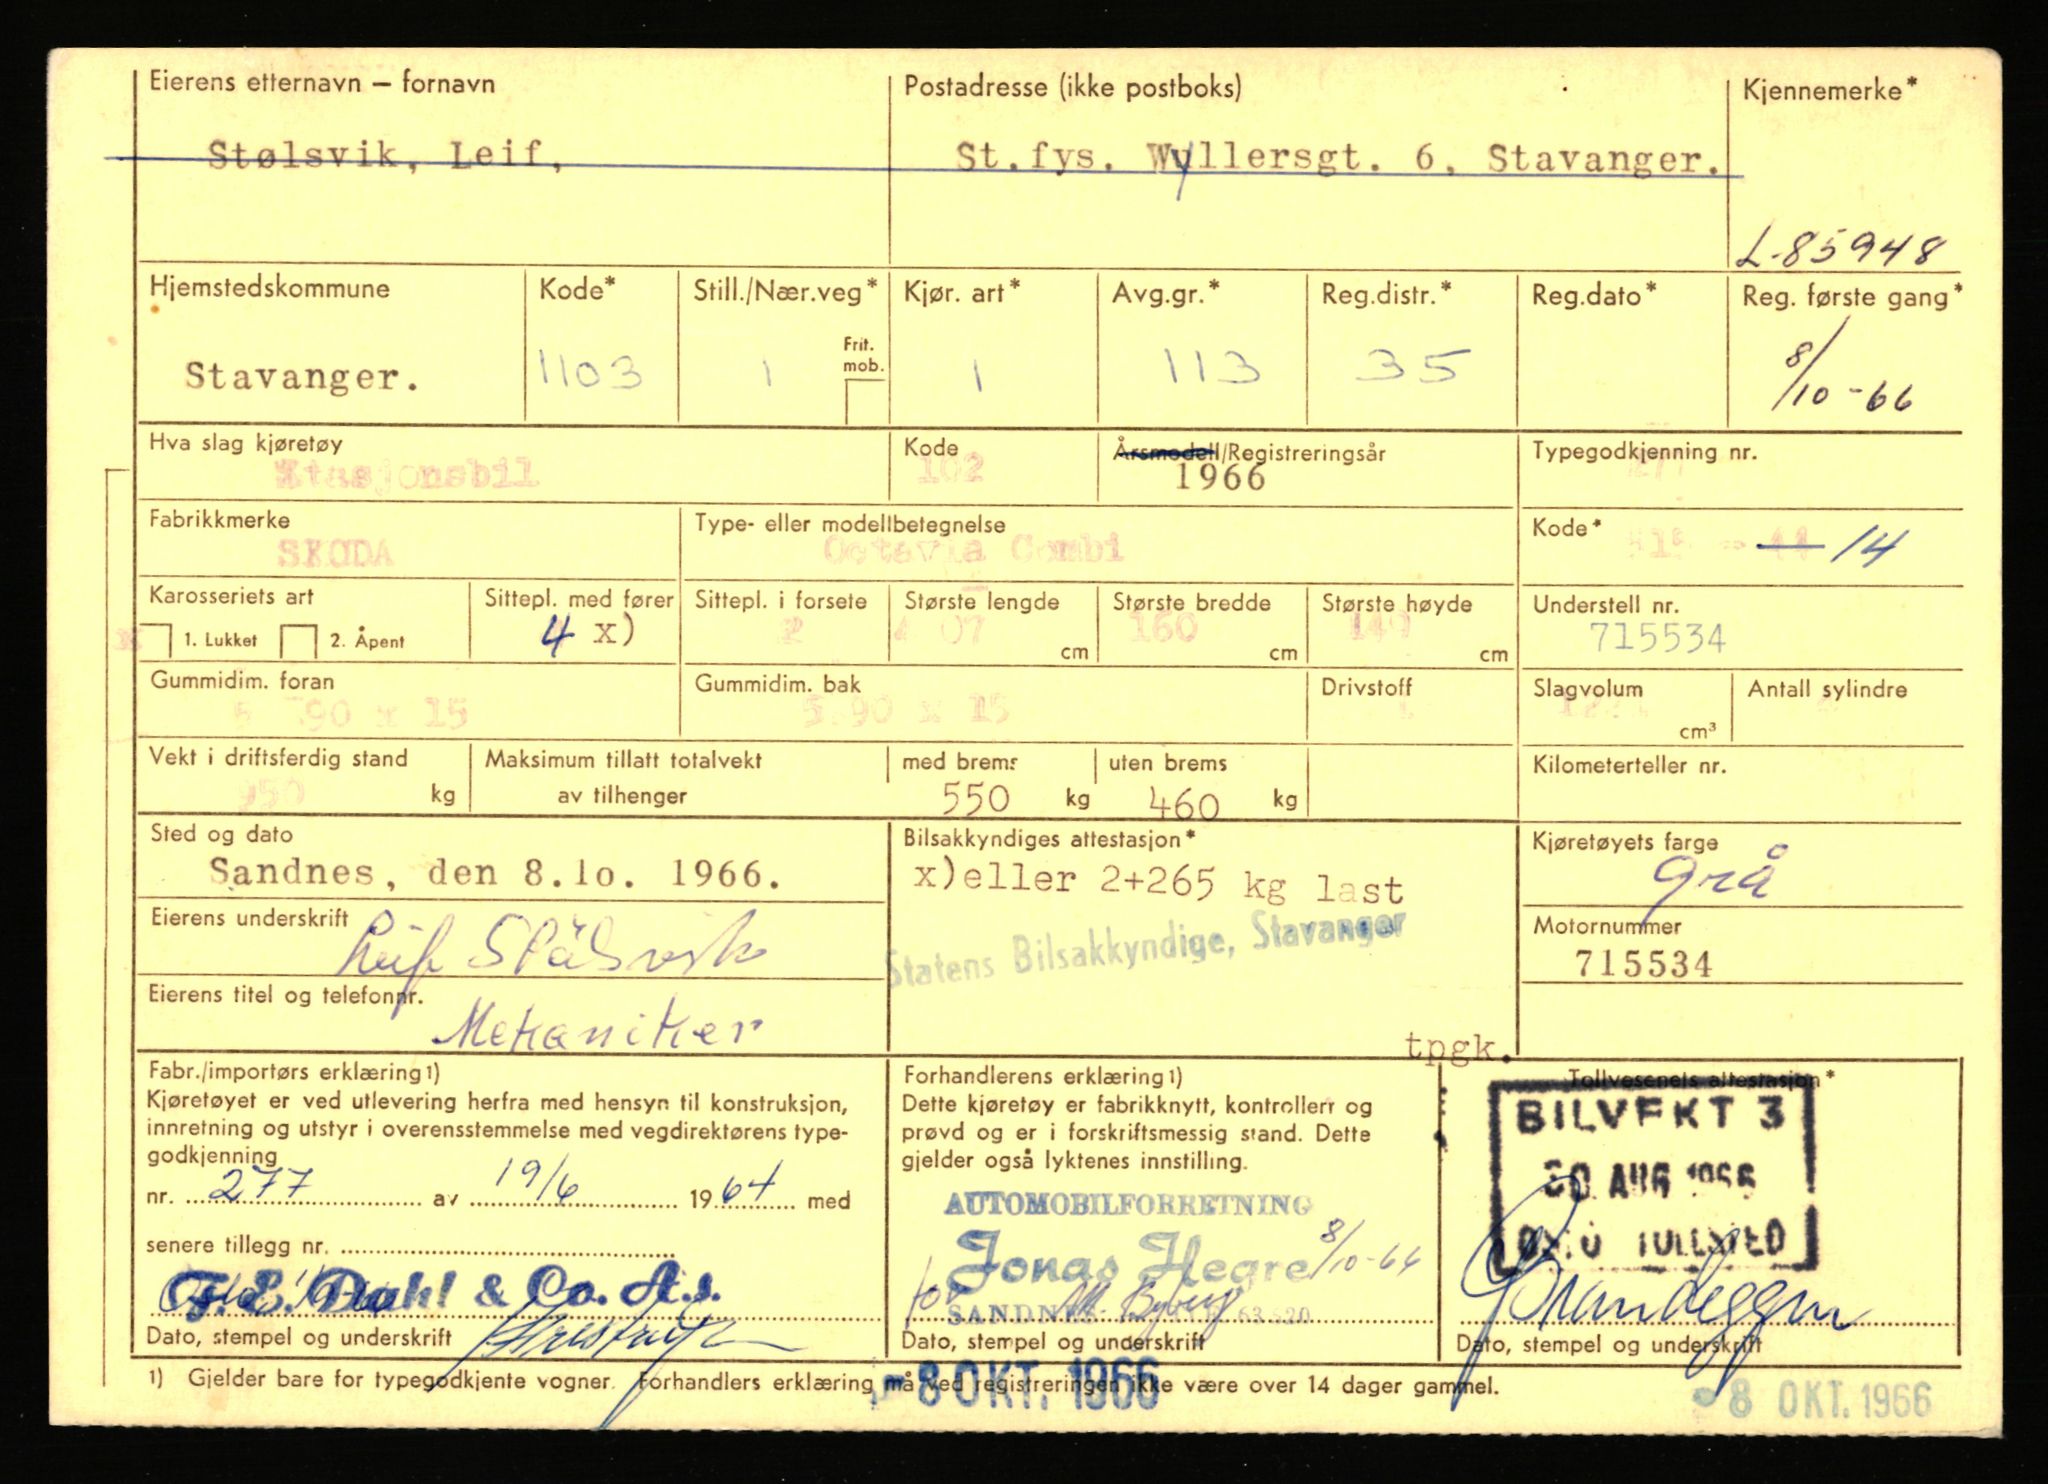 Eierens etternavn — fornavn
Postadresse (ikke postboks)
Kjennemerke*
Stølsvik, Leif,
St.fys. Wyllersgt. 6, Stavanger.
L-85948
Hjemstedskommune
Kode*
Still./Nær.veg*
Kjør. art*
Avg.gr.*
Reg.distr.*
Reg.dato*
Reg. første gang*
Frit. mob.
Stavanger.
1103
1
1
113
35
8/10-66
Hva slag kjøretøy
Kode
Årsmodell/Registreringsår
Typegodkjenning nr.
Stasjonsbil
102
1966
Fabrikkmerke
Type- eller modellbetegnelse
Kode*
SKODA
Octavia Combi
14
Karosseriets art
Sittepl. med fører
Sittepl. i forsete
Største lengde
Største bredde
Største høyde
Understell nr.
x 1. Lukket 2. Åpent
4 x)
2
07 cm
160 cm
149 cm
715534
Gummidim. foran
Gummidim. bak
Drivstoff
Slagvolum
Antall sylindre
90 x 15
5.90 x 15
cm³
Vekt i driftsferdig stand
Maksimum tillatt totalvekt
med brems
uten brems
Kilometerteller nr.
950 kg
av tilhenger
550 kg
460 kg
Sted og dato
Bilsakkyndiges attestasjon*
Kjøretøyets farge
Sandnes, den 8.1o. 1966.
x)eller 2+265 kg last
Grå
Eierens underskrift
Statens Bilsakkyndige, Stavanger
Motornummer
Leif Stølsvik
715534
Eierens titel og telefonnr.
Mekaniker
tpgk.
Fabr./importørs erklæring1)
Kjøretøyet er ved utlevering herfra med hensyn til konstruksjon,
innretning og utstyr i overensstemmelse med vegdirektørens type-
godkjenning
nr. 277 av 19/6 1964 med
senere tillegg nr.
F. E. Dahl & Co. A.s.
Dato, stempel og underskrift
Forhandlerens erklæring1)
Dette kjøretøy er fabrikknytt, kontrollert og
prøvd og er i forskriftsmessig stand. Dette
gjelder også lyktenes innstilling.
AUTOMOBILFORRETNING
Jonas Hegre 8/10-66
for
SANDNES
Dato, stempel og underskrift
Tollvesenets attestasjon*
BILVEKT 3
30 AUG 1966
OSLO TOLLSTED
Dato, stempel og underskrift
1) Gjelder bare for typegodkjente vogner. Forhandlers erklæring må ved registreringen ikke være over 14 dager gammel.
-8 OKT. 1966
-8 OKT. 1966